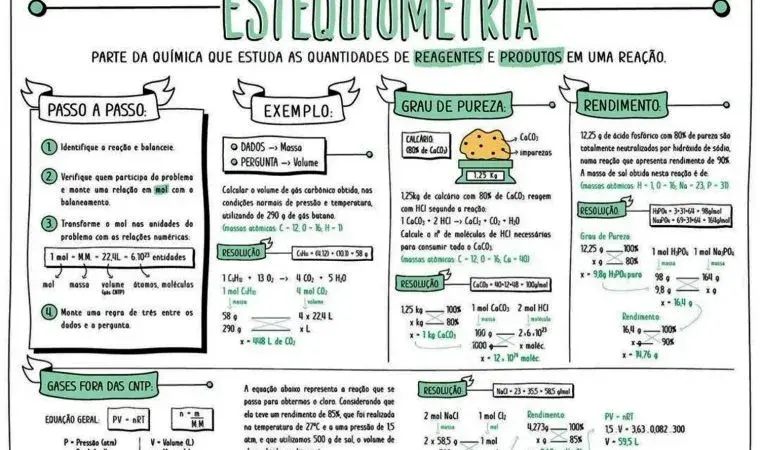 ESTEQUIOMETRIA
PARTE DA QUÍMICA QUE ESTUDA AS QUANTIDADES DE REAGENTES E PRODUTOS EM UMA REAÇÃO.
PASSO A PASSO:
1 Identifique a reação e balanceie.
2 Verifique quem participa do problema
e monte uma relação em mol com o
balanceamento.
3 Transforme o mol nas unidades do
problema com as relações numéricas:
1 mol = M.M. = 22,4L = 6.10²³ entidades
mol massa volume átomos, moléculas
(gás CNTP)
4 Monte uma regra de três entre os
dados e a pergunta.
EXEMPLO:
DADOS → Massa
PERGUNTA → Volume
Calcular o volume de gás carbônico obtido, nas
condições normais de pressão e temperatura,
utilizando de 290 g de gás butano.
(massas atômicas: C - 12, O - 16, H - 1)
RESOLUÇÃO
C₄H₁₀ = (4.12) + (10.1) = 58 g
1 C₄H₁₀ + 13 O₂ → 4 CO₂ + 5 H₂O
1 mol C₄H₁₀ 4 mol CO₂
massa volume
58 g 4 x 22,4 L
290 g x L
x = 448 L de CO₂
GRAU DE PUREZA:
CALCÁRIO
(80% de CaCO₃)
CaCO₃
impurezas
1,25 Kg
1,25kg de calcário com 80% de CaCO₃ reagem
com HCl segundo a reação:
1 CaCO₃ + 2 HCl → CaCl₂ + CO₂ + H₂O
Calcule o nº de moléculas de HCl necessárias
para consumir todo o CaCO₃.
(massas atômicas: C - 12, O - 16, Ca - 40)
RESOLUÇÃO
CaCO₃ = 40+12+48 = 100g/mol
1,25 kg 100% 1 mol CaCO₃ 2 mol HCl
x kg 80% massa molécula
x = 1 kg CaCO₃ 100 g 2.6.10²³
1000 g x moléc.
x = 12 x 10²⁴ moléc.
RENDIMENTO:
12,25 g de ácido fosfórico com 80% de pureza são
totalmente neutralizados por hidróxido de sódio,
numa reação que apresenta rendimento de 90%.
A massa de sal obtida nesta reação é de:
(massas atômicas: H - 1, O - 16, Na - 23, P - 31)
RESOLUÇÃO:
H₃PO₄ = 3+31+64 = 98g/mol
Na₃PO₄ = 69+31+64 = 164g/mol
Grau de Pureza
12,25 g 100% 1 mol H₃PO₄ 1 mol Na₃PO₄
x g 80% massa massa
x = 9,8g H₃PO₄ puro 98 g 164 g
9,8 g x g
x = 16,4 g
Rendimento
16,4 g 100%
x g 90%
x = 14,76 g
GASES FORA DAS CNTP:
EQUAÇÃO GERAL: PV = nRT n = m
MM
P = Pressão (atm) V = Volume (L)
A equação abaixo representa a reação que se
passa para obtermos o cloro. Considerando que
ela teve um rendimento de 85%, que foi realizada
na temperatura de 27°C e a uma pressão de 1,5
atm, e que utilizamos 500 g de sal, o volume de
RESOLUÇÃO
NaCl = 23 + 35,5 = 58,5 g/mol
2 mol NaCl 1 mol Cl₂ Rendimento PV = nRT
massa 4,273g 100% 1,5 . V = 3,63 . 0,082 . 300
2 x 58,5 g 1 mol x g 85% V = 59,5 L